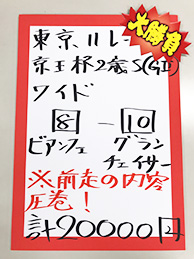 大勝負
東京11レース
京王杯2歳S(GⅡ)
ワイド
8 — 10
ビアンフェ グラン
チェイサー
※前走の内容
圧巻!
計20000円